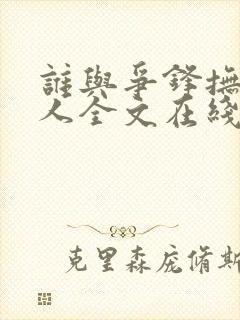 誰與爭鋒撫
人全文在綫
克里森庞脩斯